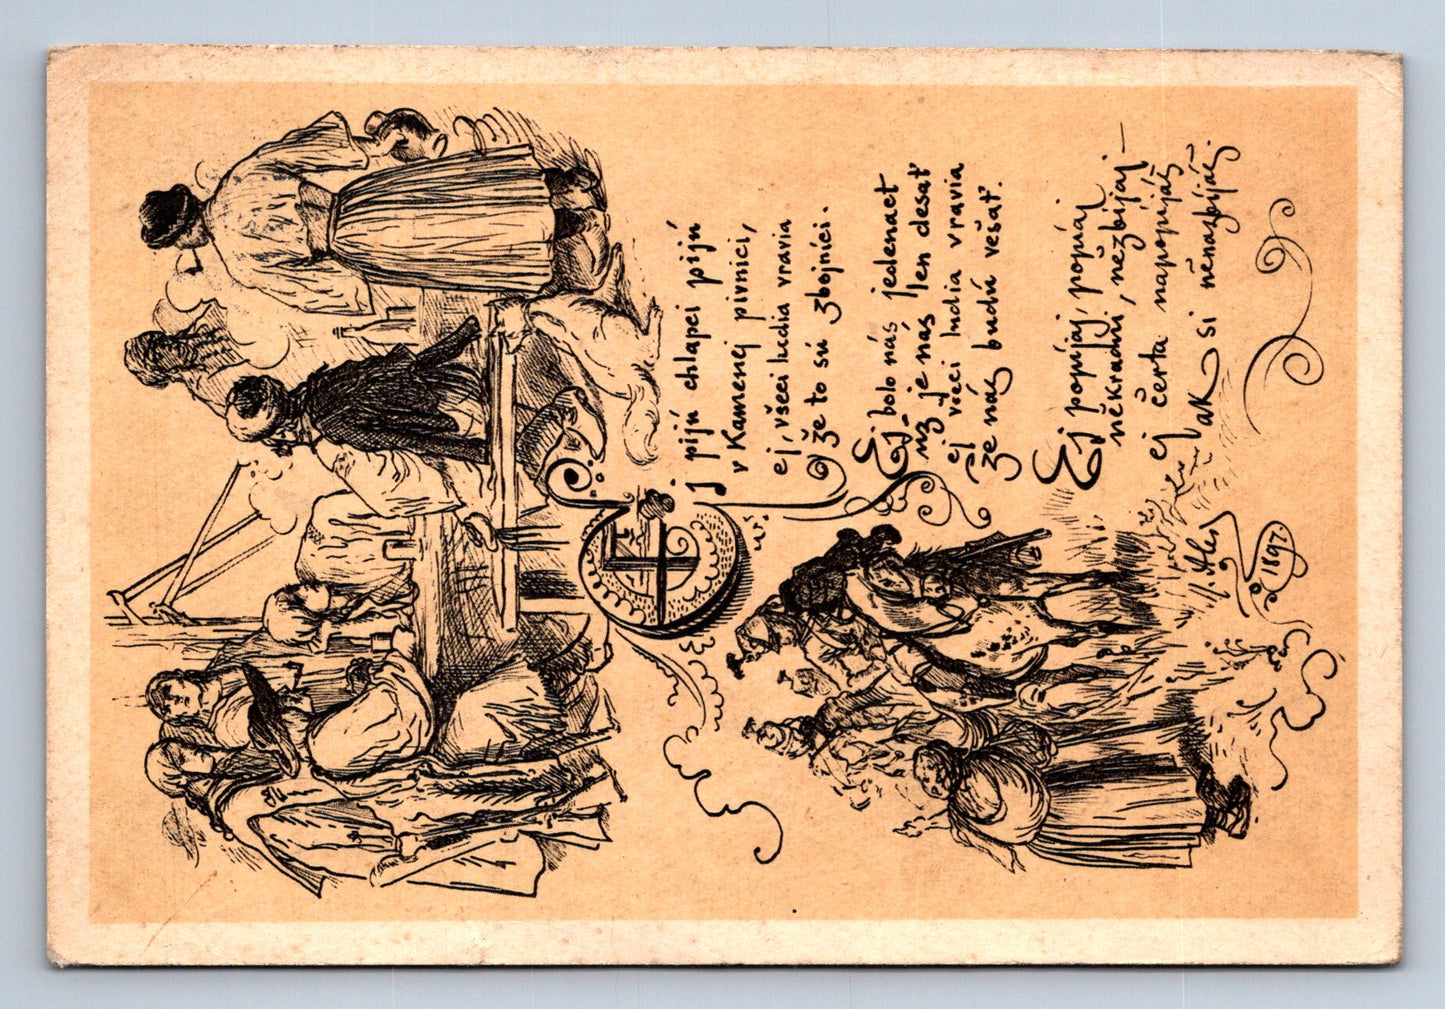 Ej pijú chlapci pijú
v Kamenej pivnici,
ej, všeci ludia vravia
že to sú zbojníci.
Ej bolo nás jedenact
už je nás len desať
ej všeci ludia vravia
že nás budú vešať.
Ej popíjaj, popíjaj
někradni, nezbíjaj —
ej čerta napopíjáš
ak si nenazbíjáš.
M. Aleš
1897.